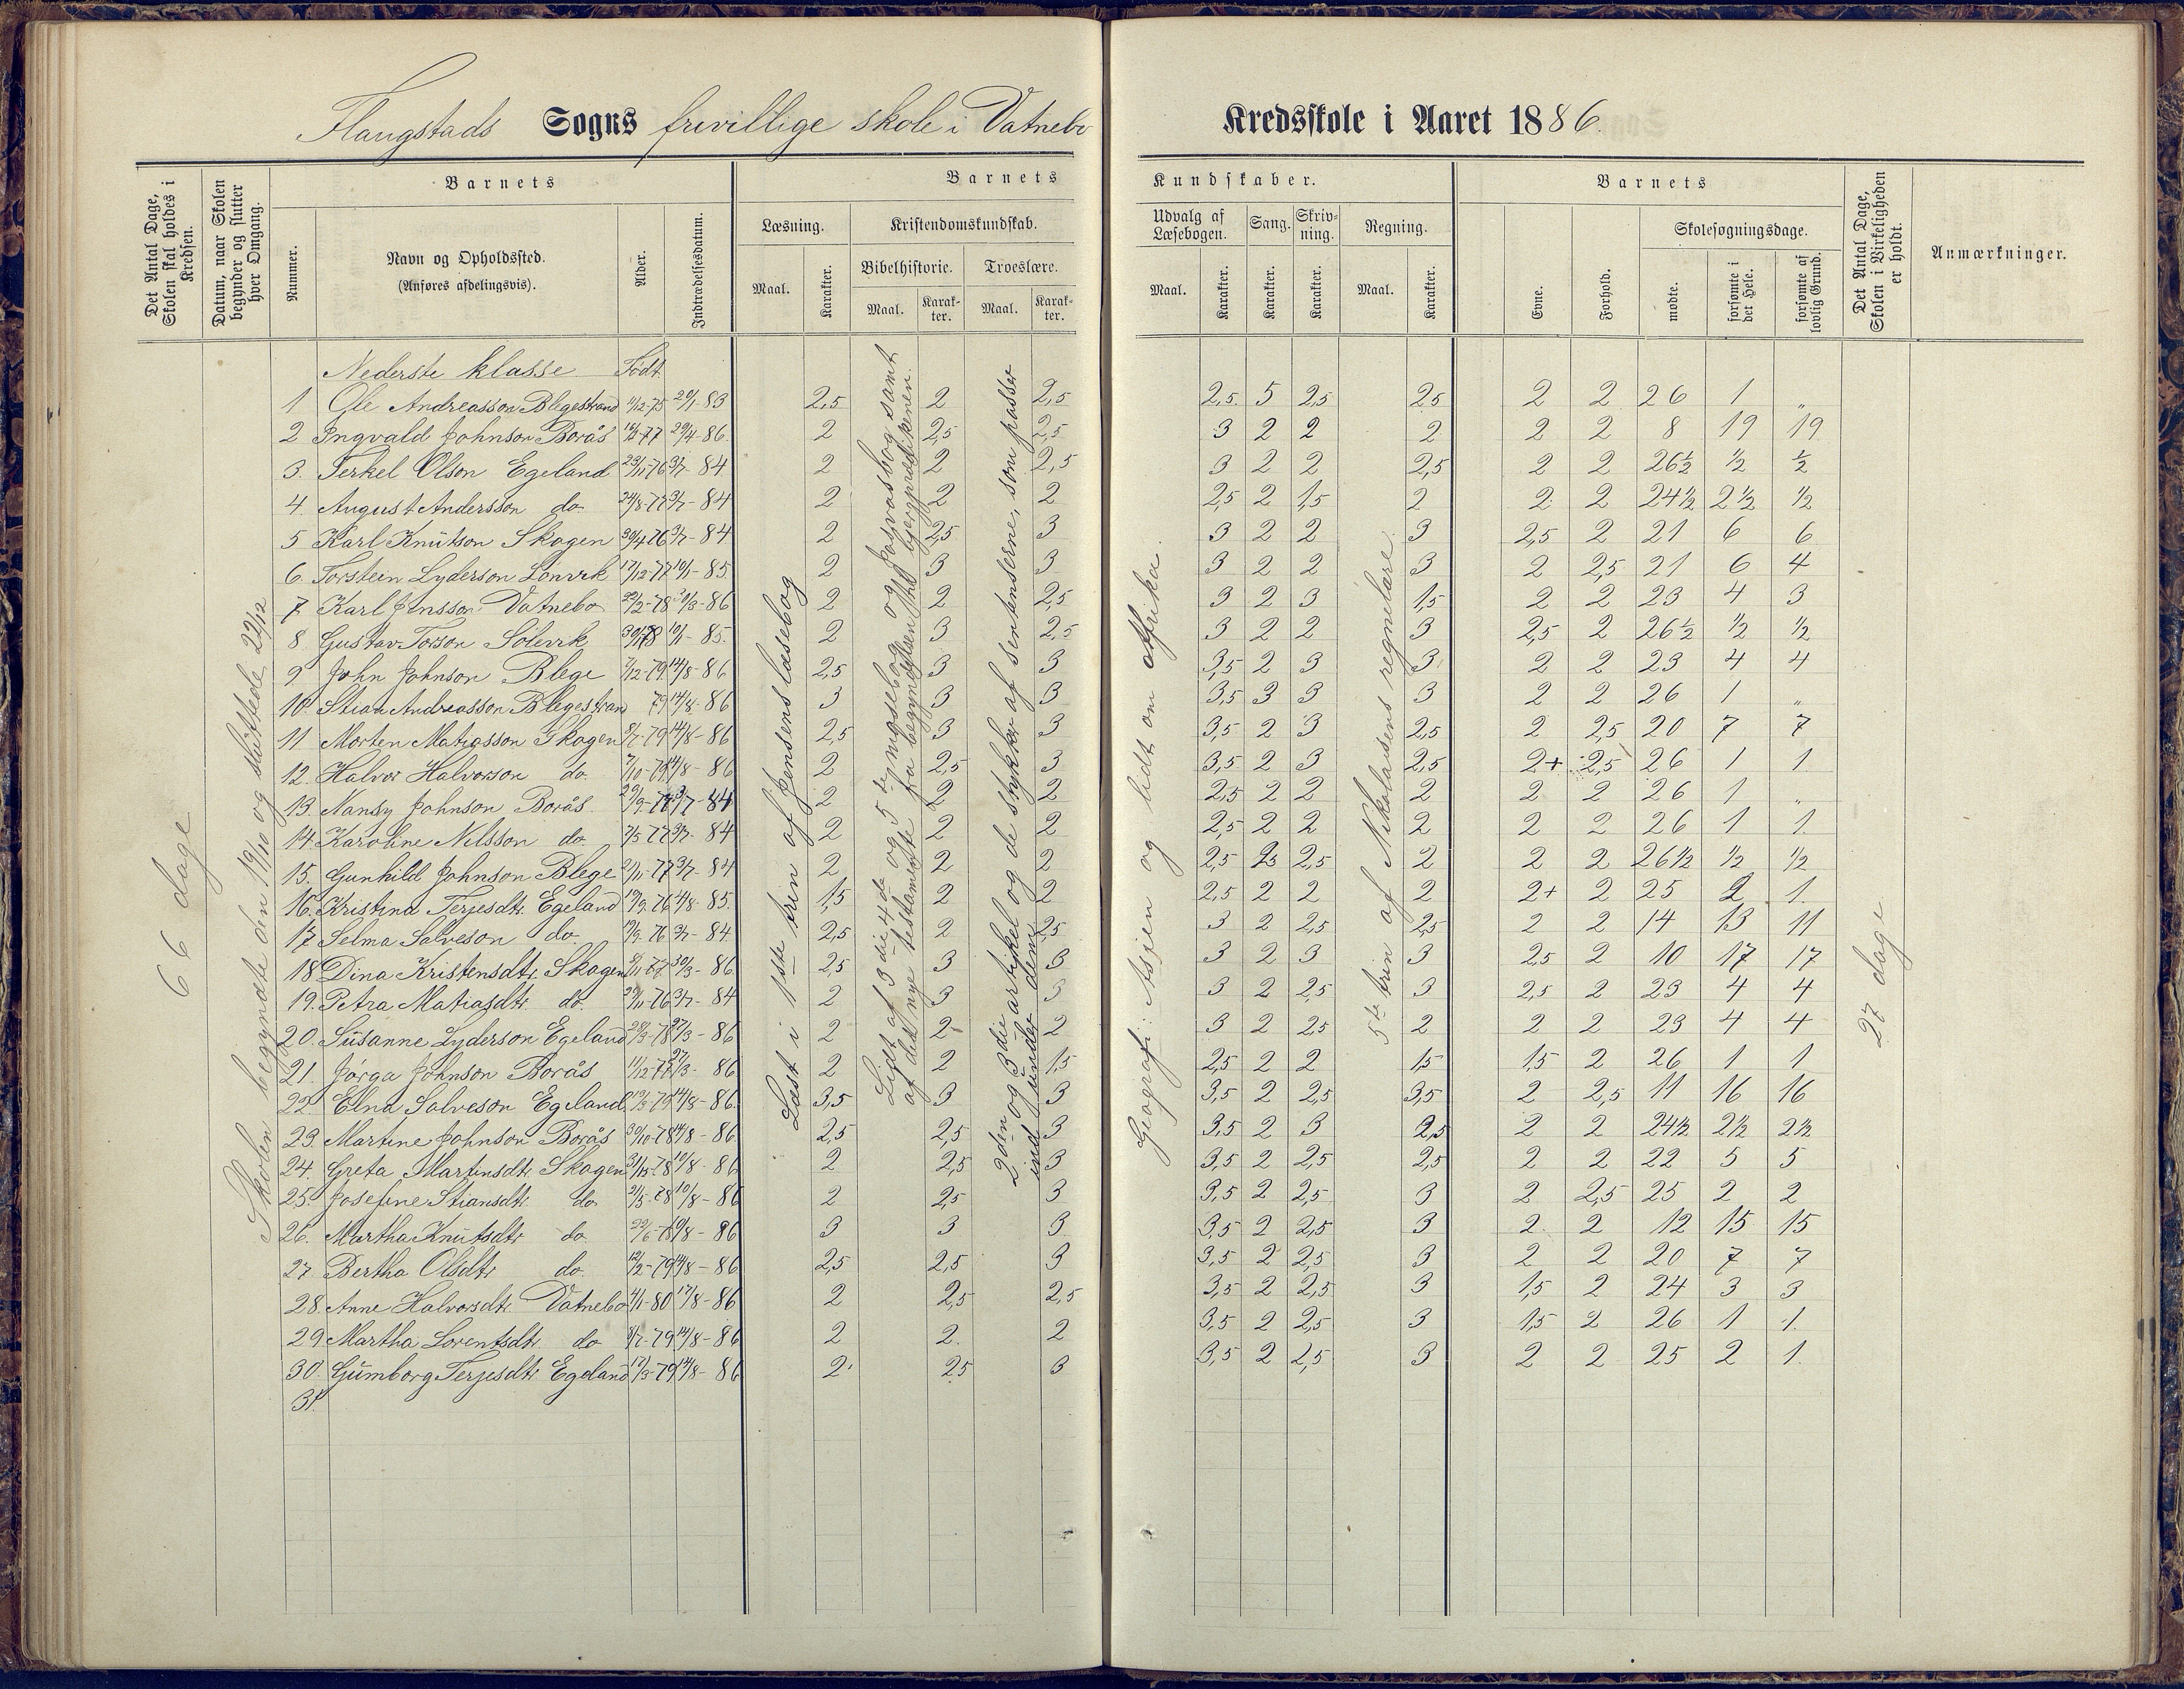 Flangstads Sogns frivillige skole i Vatnebo Kredsskole i Aaret 1886.
Det Antal Dage, Skolen skal holdes i Kredsen.
Datum, naar Skolen begynder og slutter hver Omgang.
Barnets
Nummer.
Navn og Opholdssted.
(Anføres afdelingsvis).
Alder.
Indtrædelsesdatum.
Barnets Kundskaber.
Læsning.
Maal. Karakter.
Kristendomskundskab.
Bibelhistorie. Troeslære.
Maal. Karakter. Maal. Karakter.
Udvalg af Læsebogen. Sang. Skrivning. Regning.
Maal. Karakter. Karakter. Karakter. Maal. Karakter.
Barnets
Evne. Forhold.
Skolesøgningsdage.
mødte. forsømte i det Hele. forsømte af lovlig Grund.
Det Antal Dage, Skolen i Virkeligheden er holdt.
Anmærkninger.
66 dage
Skolen begyndte den 19/10 og sluttede 22/12
Læst i 1ste trin af Jensens læsebog
Lidt af 3die 4de og 5te mosebog og Josvas bog samt
af det nye testamente fra begyndelsen til bergprædikenen.
2den og 3die artikel og de stykker af sentenserne, som passer
ind under dem
Geografi: Asien og lidt om Afrika.
5te trin af Nikolaisens regnelære
27 dage
Nederste klasse Født
1 Ole Andreasson Blegestrand 4/12-75 20/1-83 2,5 2 2,5 2,5 5 2,5 2,5 2 2 26 1 "
2 Ingvald Johnson Borås 29/4-86 2 2,5 2,5 3 2 2 2 2 2 8 19 19
3. Terkel Olson Egeland 23/11-76 3/7-84 2 2 2,5 3 2 2 2,5 2 2 26½ ½ ½
4. August Andersson do 24/8-77 3/7-84 2 2 2 2,5 2 1,5 2 2 2 24½ 2½ ½
5 Karl Knutson Skogen 30/4 76 3/7-84 2 2,5 3 3 2 2 3 2,5 2 21 6 6
6. Torstein Lyderson Lönvrk 17/12-77 10/1-85. 2 3 3 3 2 2 3 2 2,5 21 6 4
7 Karl Jensson Vatnebo 22/2-78 30/3-86 2 2 2,5 3 2 3 1,5 2 2 23 4 3
8 Gustav Torson Sölevrk 10/1-85. 2 3 2,5 3 2 2 3 2,5 2 26½ ½ ½
9 John Johnson Blege 7/12-79 14/8-86 2,5 3 3 3,5 2 3 3 2 2 23 4 4
10. Stian Andreasson Blegestran 79 14/8-86 3 3 3 3,5 3 3 3 2 2 26 1 "
11 Morten Matiasson Skogen 5/7-79 14/8-86 2,5 3 3 3,5 2 3 2,5 2 2,5 20 7 7
12. Halvor Halvorson do. 7/10-79 14/8-86 2 2,5 3 3,5 2 3 2,5 2+ 2,5 26 1 1
13. Nansy Johnson Borås. 29/9-77 3/7-84 2 2 2 2,5 2 2 2 2 2 26 1 "
14. Karoline Nilsson do 7/5 77 3/7-84 2 2 2 2,5 2 2 2 2 2 26 1 1
15. Gunhild Johnson Blege 2/11-77 3/7-84 2 2 2 2,5 2,5 2,5 2 2 2 26½ ½ ½
16. Kristina Terjesdtr. Egeland 19/9-76 14/8-85. 1,5 2 2 2,5 2 2 2 2+ 2 25 2 1.
17 Selma Salveson do 19/9-76 3/7-84 2,5 2 2,5 3 2 2,5 2,5 2 2 14 13 11
18 Dina Kristensdtr. Skogen 5/11-77 30/3-86. 2,5 3 3 3 2 3 3 2,5 2 10 17 17
19. Petra Matiasdtr. do. 29/11-76 3/7-84 2 3 3 3 2 2,5 3 2,5 2 23 4 4
20. Susanne Lyderson Egeland 28/3-78 27/3-86 2 2 2 3 2 2,5 2 2 2 23 4 4
21. Jörga Johnson Borås 11/12-77 27/3-86 2 2 1,5 2,5 2 2 1,5 1,5 2 26 1 1
22. Elna Salveson Egeland 19/3-79 14/8-86. 3,5 3 3 3,5 2 2,5 3,5 2 2,5 11 16 16
23. Martine Johnson Borås 30/10-78 14/8-86. 2,5 2,5 3 3,5 2 3 2,5 2 2 24½ 2½ 2½
24. Greta Martinsdtr. Skogen 10/8-86 2 2,5 3 3,5 2 2,5 2,5 2 2 22 5 5
25. Josefine Stiansdtr. do 2/5-78 10/8-86 2 2,5 3 3,5 2 2,5 3 2 2,5 25 2 2
26. Martha Knutsdtr do 29/6-78 10/8-86 3 3 3 3,5 2 2,5 3 2 2 12 15 15
27. Bertha Olsdtr do. 12/2-79 14/8-86 2,5 2,5 3 3,5 2 2,5 3 2 2 20 7 7
28. Anne Halvorsdtr. Vatnebo 4/1-80 17/8-86 2 2,5 2,5 3,5 2 2,5 3 1,5 2 24 3 3
29 Martha Lorentsdtr. do 8/7-79 14/8-86 2 2 2 3,5 2 2,5 3 1,5 2 26 1 1.
30. Gumborg Terjesdtr. Egeland 17/3-79 14/8-86 2 2,5 3 3,5 2 2,5 3 2 2 25 2 1.
31.